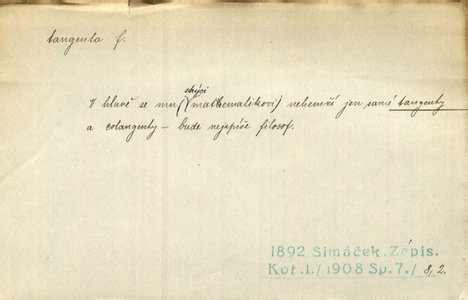 tangenta f.
strýci
V hlavě se mu (mathematikovi) nehemží jen samé tangenty
a cotangenty – bude nejspíše filosof.
1892 Šimáček. Zápis.
Koř.1./1908 Sp.7./ 8, 2.